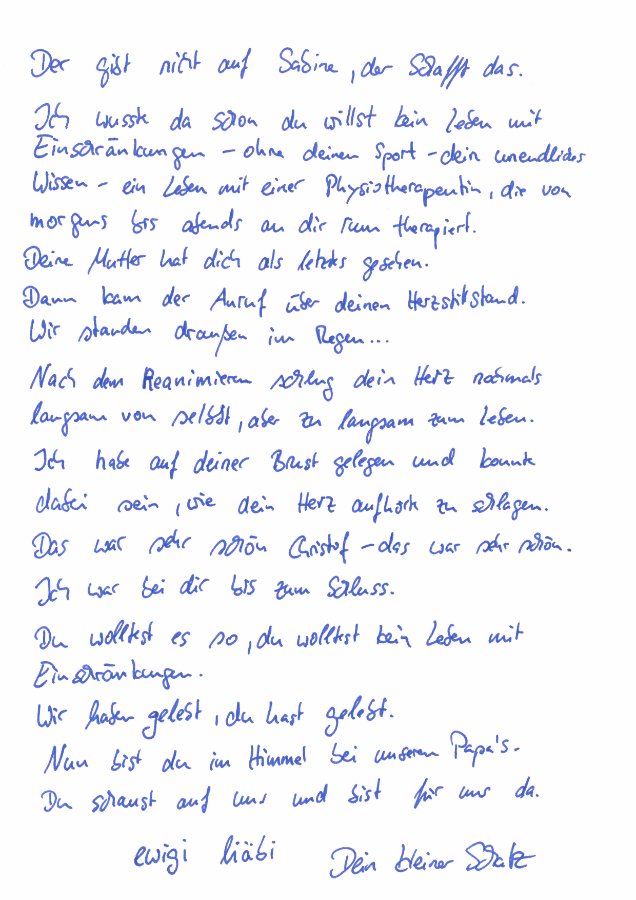 Der gibt nicht auf Sabine, der schafft das.
Ich wusste da schon du willst kein Leben mit
Einschränkungen – ohne deinen Sport – dein unendliches
Wissen – ein Leben mit einer Physiotherapeutin, die von
morgens bis abends an dir rum therapiert.
Deine Mutter hat dich als letztes gesehen.
Dann kam der Anruf über deinen Herzstillstand.
Wir standen draußen im Regen...
Nach dem Reanimieren schlug dein Herz nochmals
langsam von selbst, aber zu langsam zum Leben.
Ich habe auf deiner Brust gelegen und konnte
dabei sein, wie dein Herz aufhörte zu schlagen.
Das war sehr schön Christof – das war sehr schön.
Ich war bei dir bis zum Schluss.
Du wolltest es so, du wolltest kein Leben mit
Einschränkungen.
Wir haben gelebt, du hast gelebt.
Nun bist du im Himmel bei unseren Papa's.
Du schaust auf uns und bist für uns da.
ewigi liäbi Dein kleiner Schatz